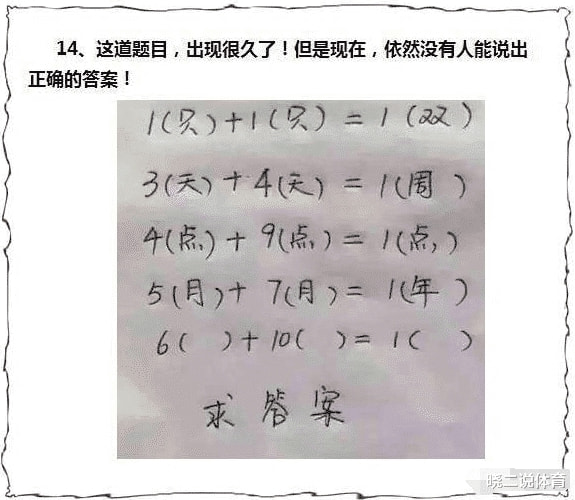 14、这道题目，出现很久了！但是现在，依然没有人能说出
正确的答案！
1(只)+1(只)=1(双)
3(天)+4(天)=1(周)
4(点)+9(点)=1(点)
5(月)+7(月)=1(年)
6( )+10( )=1( )
求答案
晓二说体育